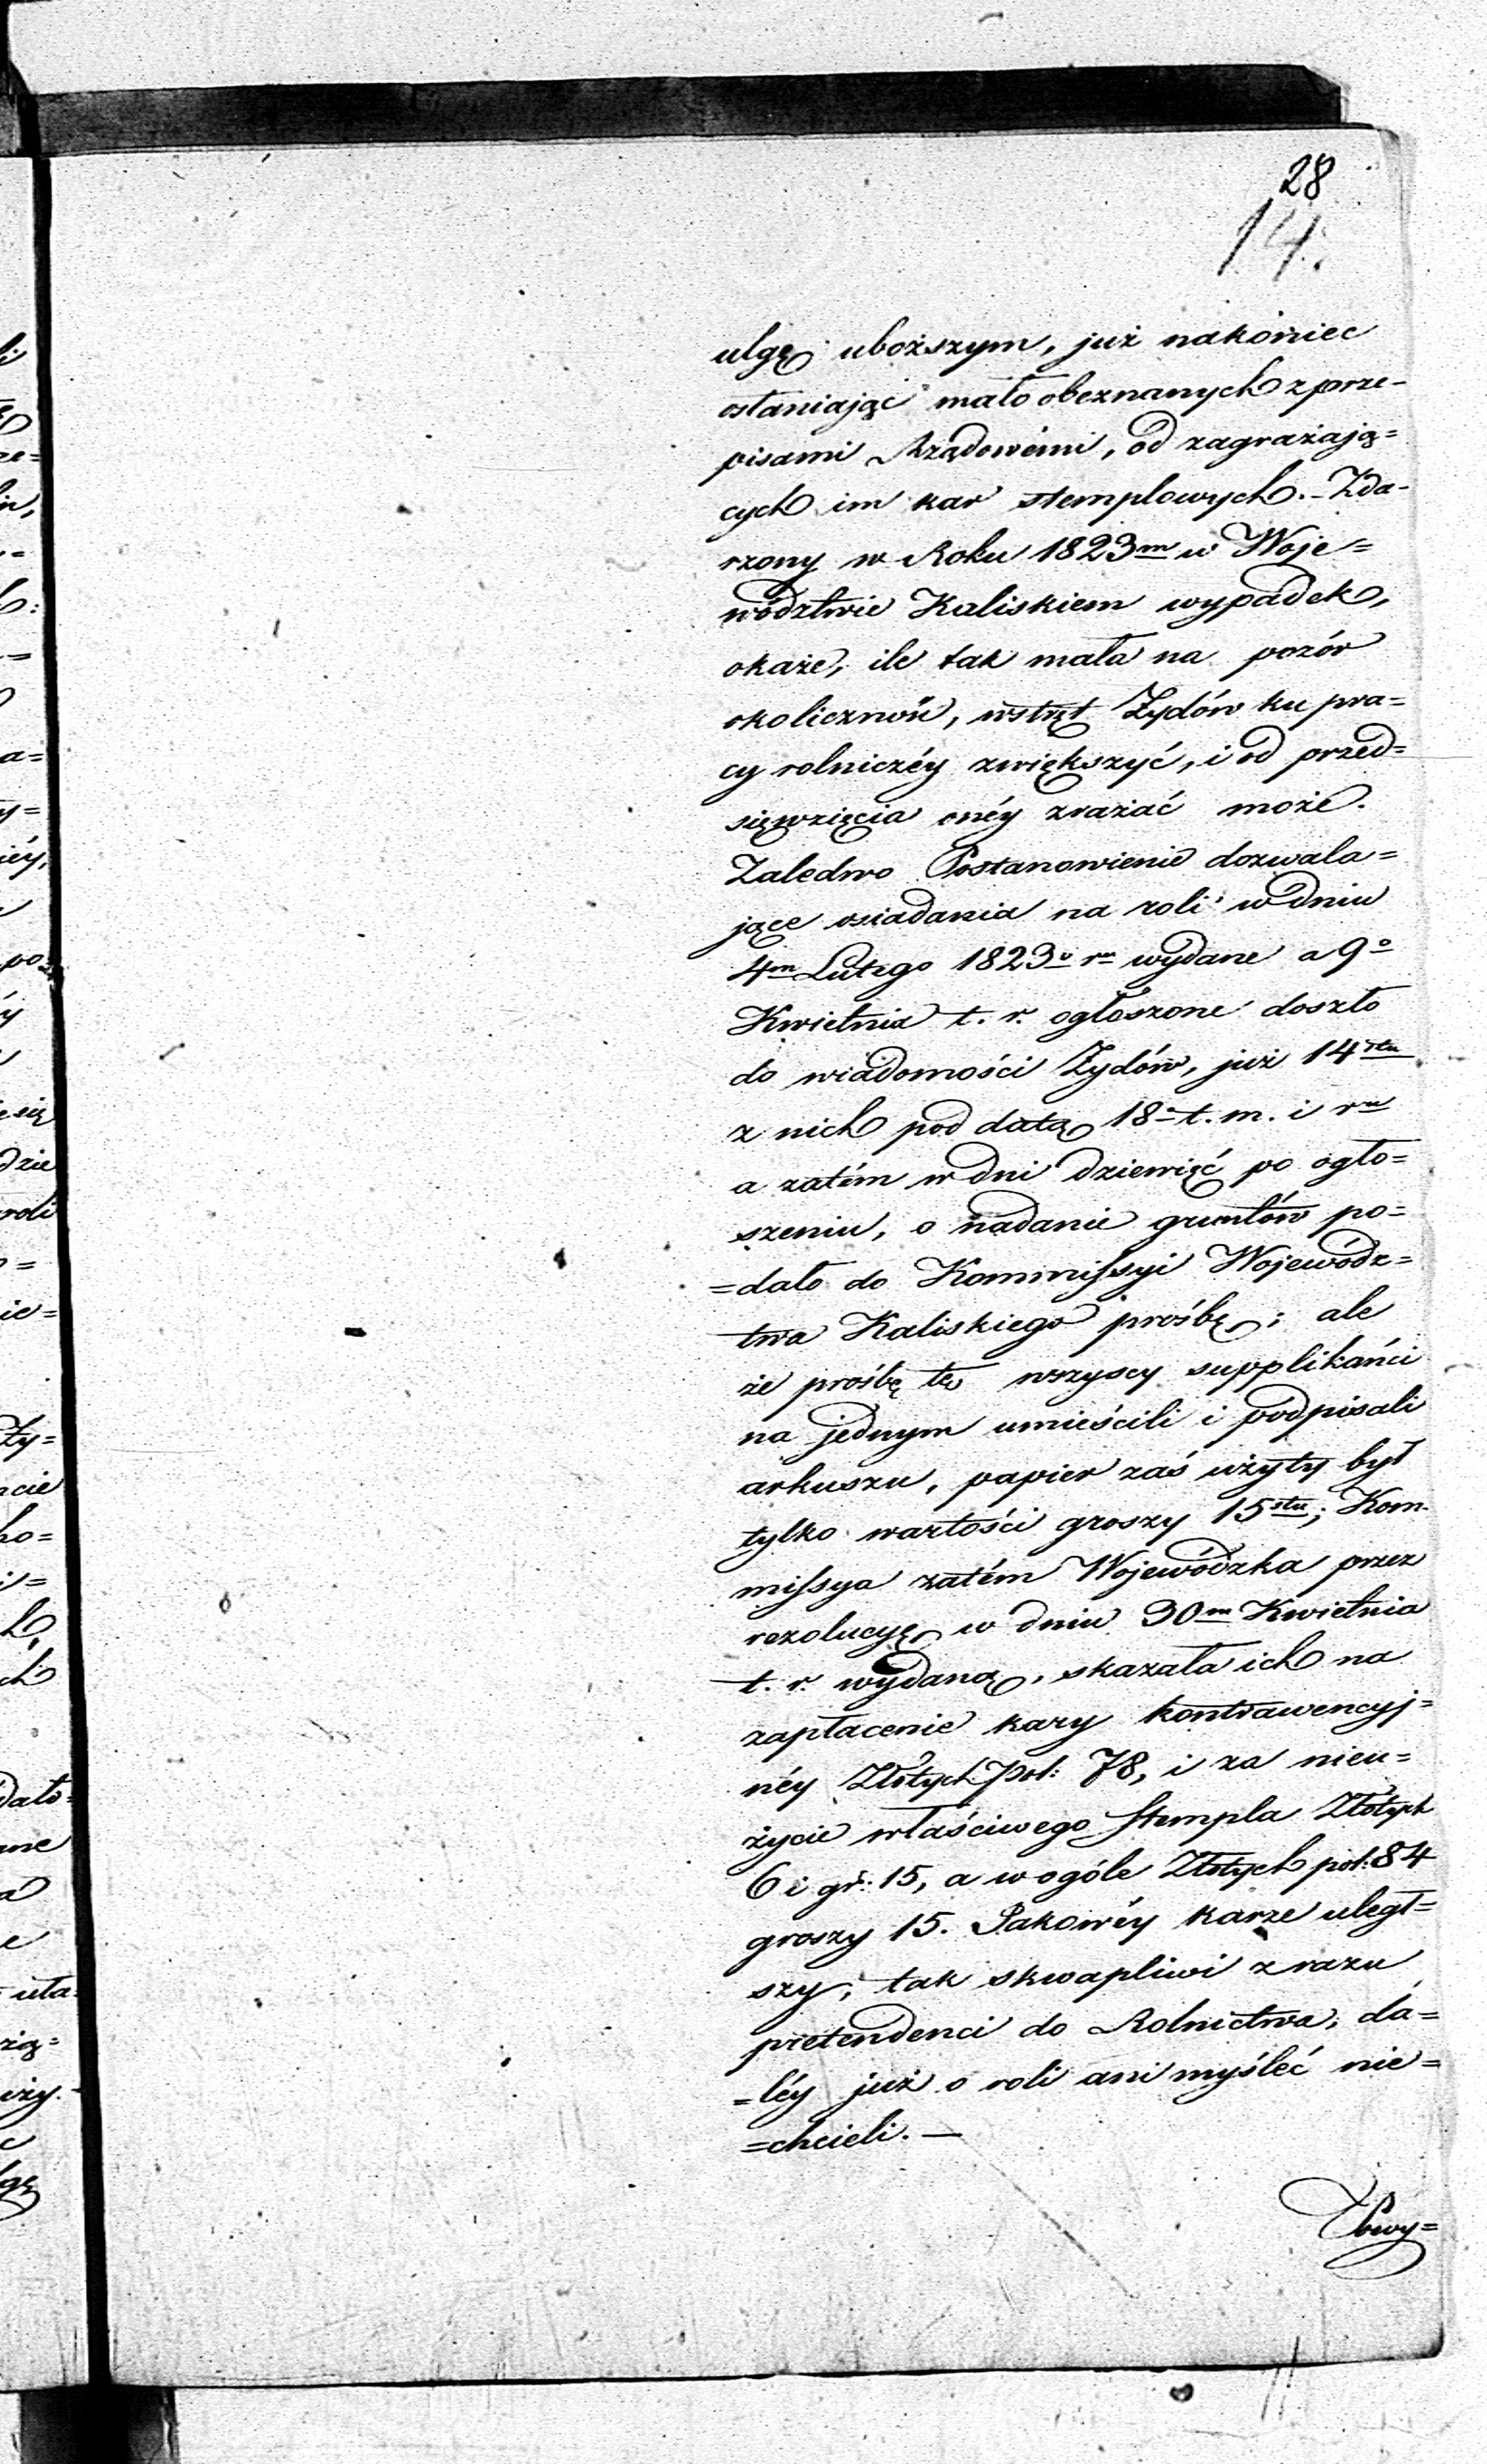 28
14.
ulgę uboższym, już nakoniec
osłaniając mało obeznanych z prze-
pisami Rządowémi, od zagrażają=
cych im kar stemplowych. - Zda-
rzony w Roku 1823m w Woje=
wództwie Kaliskiem wypadek,
okaże, ile tak mała na pozór
okoliczność, wstręt Żydów ku pra=
cy rolniczéy zwiększyć, i od przed=
sięwzięcia onéy zrażać może.
Zaledwo Postanowienie dozwala=
jące osiadania na roli w dniu
4m Lutego 1823o ru wydane a 9o
Kwietnia t. r. ogłoszone doszło
do wiadomości Żydów, już 14stu
z nich pod datą 18o t. m. i ru
a zatém w dni dziewięć po ogło=
szeniu, o nadanie gruntów po=
=dało do Kommissyi Wojewódz=
twa Kaliskiego prośbę; ale
że prośbę tę wszyscy supplikańci
na jednym umieścili i podpisali
arkuszu, papier zaś użyty był
tylko wartości groszy 15stu; Kom-
missya zatém Wojewódzka przez
rezolucyę w dniu 30m Kwietnia
t. r. wydaną, skazała ich na
zapłacenie kary kontrawencyj=
néy Złotych Pol: 78, i za nieu=
życie właściwego stempla Złotych
6 i gr: 15, a w ogóle Złotych pol: 84
groszy 15. Jakowéy karze uległ=
szy, tak skwapliwi z razu
pretendenci do Rolnictwa, da=
=léy już o roli ani myśleć nie=
=chcieli. —
Powy=